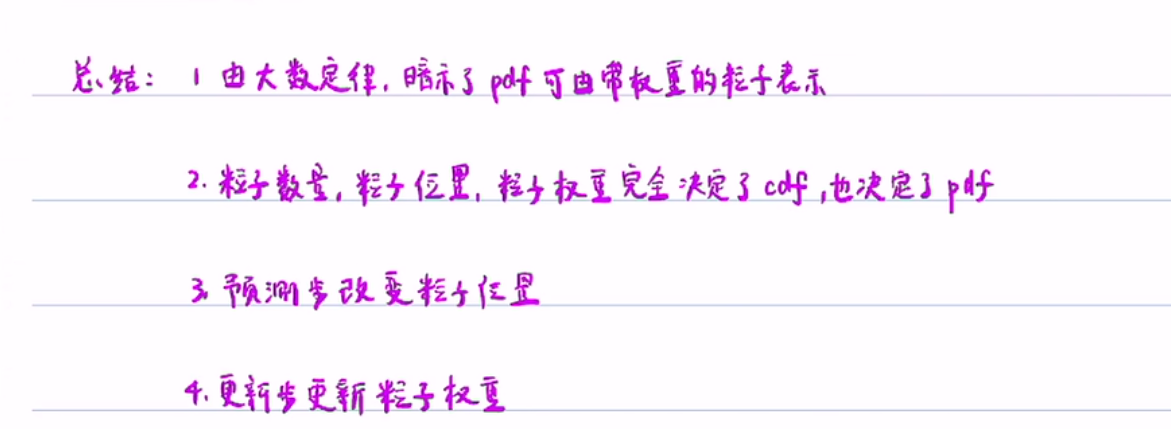 总结: 1 由大数定律, 暗示了pdf可由带权重的粒子表示
2. 粒子数量, 粒子位置, 粒子权重完全决定了cdf, 也决定了pdf
3. 预测步改变粒子位置
4. 更新步更新粒子权重